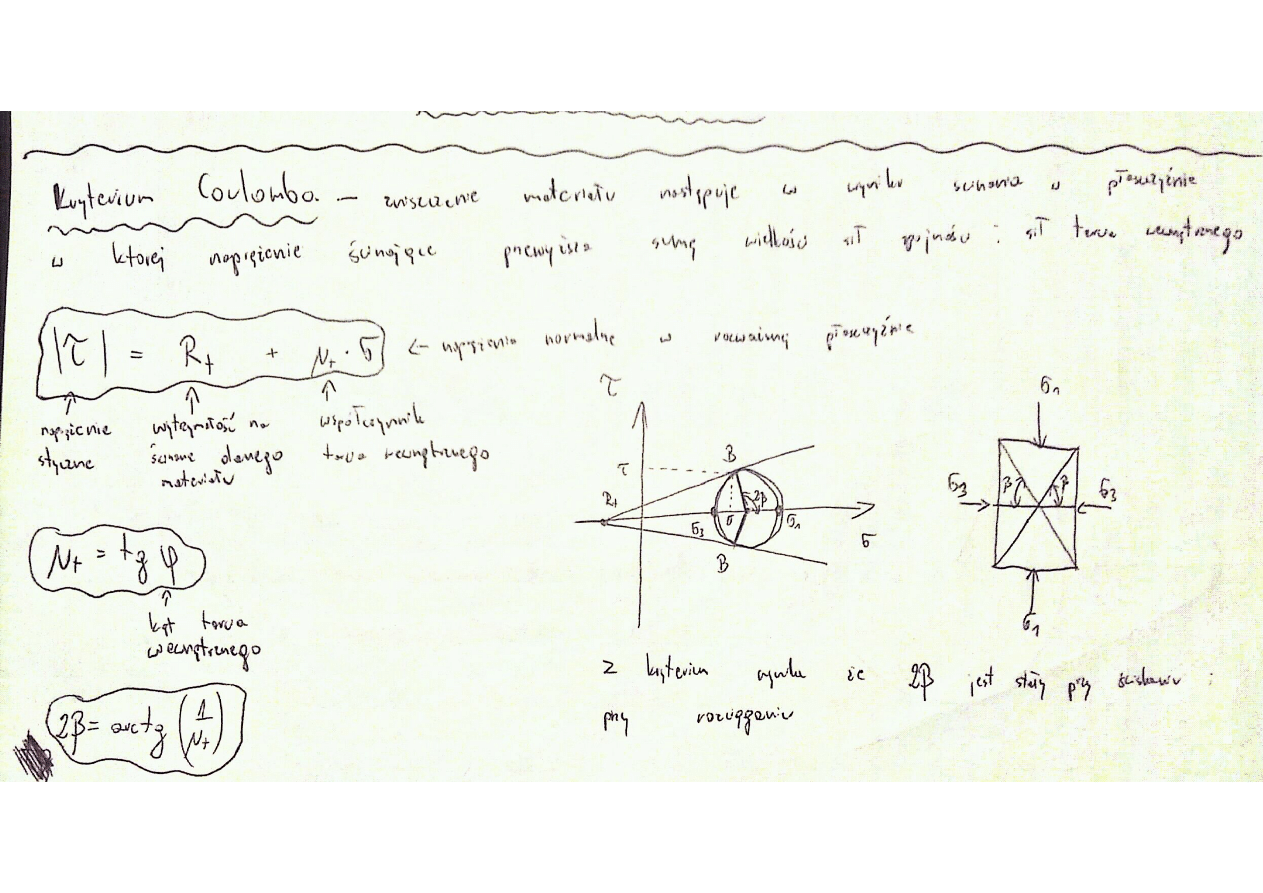 Kryterium Coulomba. — zniszczenie materiału następuje w wyniku ścinania w płaszczyźnie
w ktorej naprężenie ścinające przewyższa sumę wielkości sił spójności i sił tarcia wewnętrznego
|τ| = Rt + μt · σ ← naprężenia normalne w rozważanej płaszczyźnie
naprężenie styczne
wytrzymałość na ścinanie danego materiału
współczynnik tarcia wewnętrznego
μt = tg φ
kąt tarcia wewnętrznego
2β = arctg (1/μt)
τ
τ B
Rt σ3 σ 2β σ1
σ
B
σ1
σ3 β β σ3
σ1
Z kryterium wynika że 2β jest stały przy ściskaniu i
przy rozciąganiu